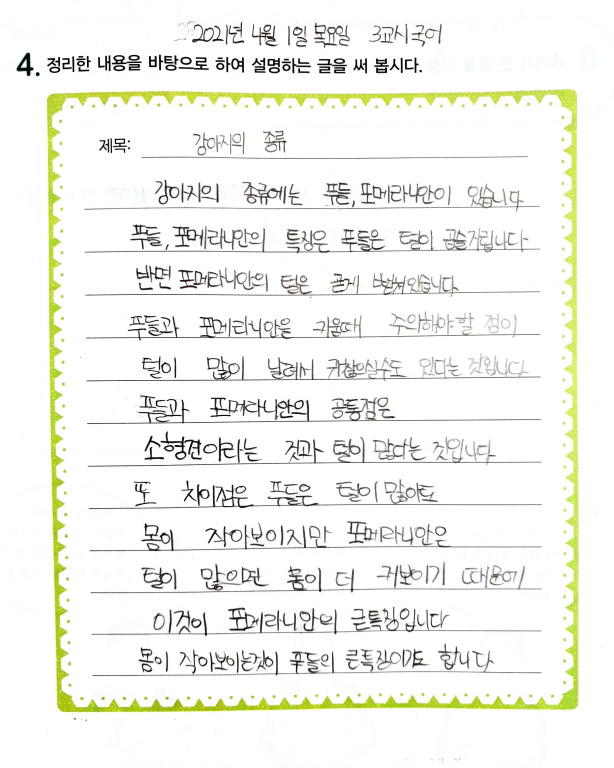 2021년 4월 1일 목요일 3교시 국어
4. 정리한 내용을 바탕으로 하여 설명하는 글을 써 봅시다.
제목: 강아지의 종류
강아지의 종류에는 푸들, 포메라니안이 있습니다
푸들, 포메라니안의 특징은 푸들은 털이 곱슬거립니다
반면 포메라니안의 털은 곧게 뻗쳐있습니다
푸들과 포메라니안을 키울때 주의해야할 점이
털이 많이 날려서 귀찮으실수도 있다는 것입니다
푸들과 포메라니안의 공통점은
소형견이라는 것과 털이 많다는 것입니다
또 차이점은 푸들은 털이 많아도
몸이 작아보이지만 포메라니안은
털이 많으면 몸이 더 커보이기 때문에
이것이 포메라니안의 큰특징입니다
몸이 작아보이는것이 푸들의 큰특징이기도 합니다